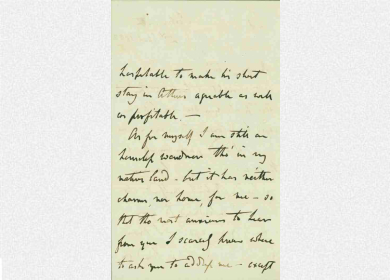 hospitable to make his short
stay in Athens agreable as well
as profitable —
As for myself I am still an
homeless wanderer tho' in my
native land – but it has neither
charms nor home, for me – so
tho' most anxious to hear
from you I scarcely know where
to ask you to address me – except